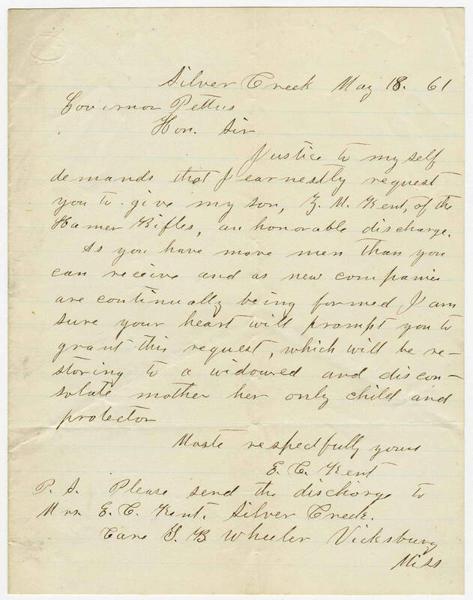 Silver Creek May 18. 61
Governor Pettus
Hon. Sir
Justice to my self
demands that I earnestly request
you to give my son, Z. M. Kent, of the
Hamer Rifles, an honorable discharge.
As you have more men than you
can receive and as new companies
are continually being formed I am
sure your heart will prompt you to
grant this request, which will be re-
storing to a widowed and discon-
solate mother her only child and
protector
Moste respectfully yours
E. C. Kent
P. S. Please send the discharge to
Mrs. E. C. Kent, Silver Creek.
Care B Wheeler Vicksburg
Miss